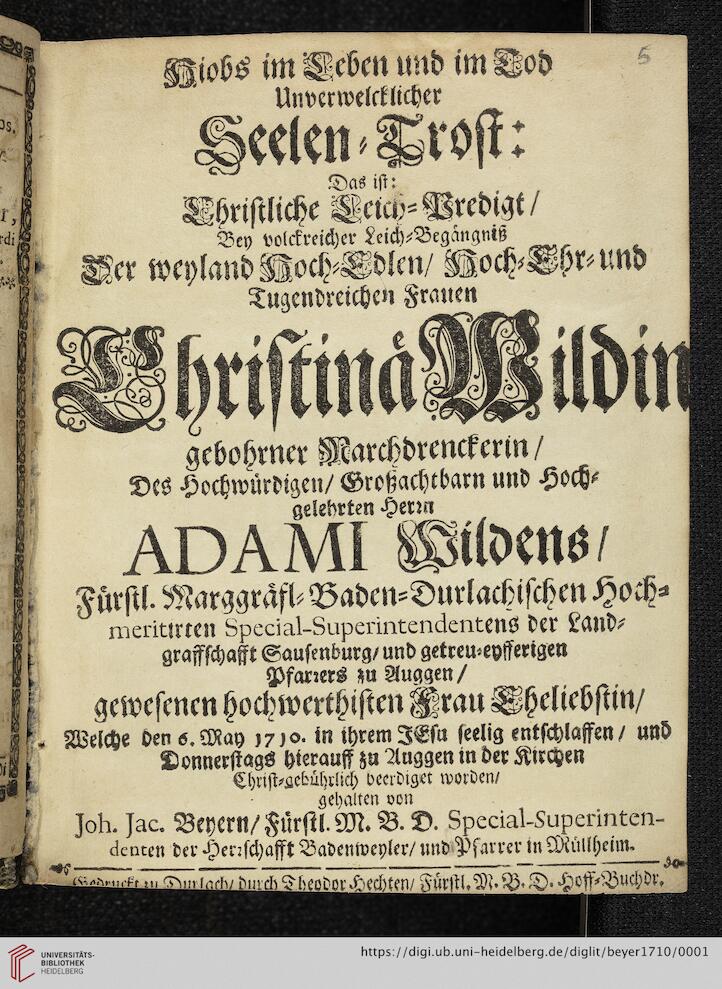 5
Hiobs im Leben und im Tod
Unverwelcklicher
Seelen-Trost:
Das ist:
Christliche Leich-Predigt /
Bey volckreicher Leich-Begängniß
Der weyland Hoch-Edlen / Hoch-Ehr- und
Tugendreichen Frauen
Christinä Wildin
gebohrner Marchdrenckerin /
Des Hochwürdigen / Großachtbarn und Hoch-
gelehrten Herrn
ADAMI Wildens /
Fürstl. Marggräfl-Baden-Durlachischen Hoch-
meritirten Special-Superintendentens der Land-
graffschafft Sausenburg / und getreu-eyfferigen
Pfarrers zu Auggen /
gewesenen hochwerthisten Frau Eheliebstin /
Welche den 6. May 1710. in ihrem JEsu seelig entschlaffen / und
Donnerstags hierauff zu Auggen in der Kirchen
Christ-gebührlich beerdiget worden /
gehalten von
Joh. Jac. Beyern / Fürstl. M. B. D. Special-Superinten-
denten der Herrschafft Badenweyler / und Pfarrer in Müllheim.
Gedruckt zu Durlach / durch Theodor Hechten / Fürstl. M. B. D. Hoff-Buchdr.
UNIVERSITÄTS-
BIBLIOTHEK
HEIDELBERG
https://digi.ub.uni-heidelberg.de/diglit/beyer1710/0001